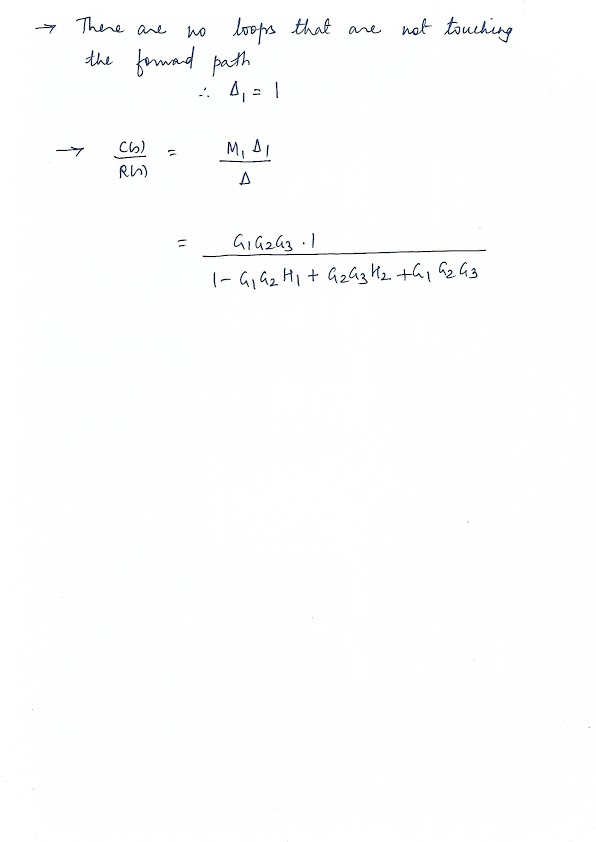 → There are no loops that are not touching
the forward path
∴ Δ₁ = 1
→ C(s)/R(s) = M₁ Δ₁/Δ
= G₁G₂G₃ . 1/1 - G₁G₂H₁ + G₂G₃H₂ + G₁G₂G₃